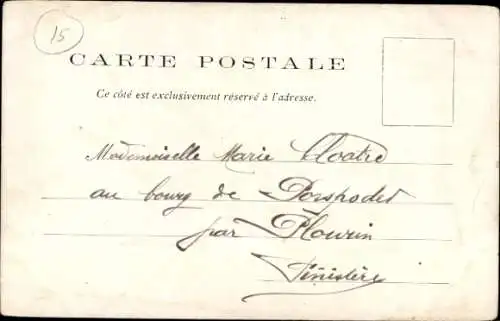 15
CARTE POSTALE
Ce côté est exclusivement réservé à l'adresse.
Mademoiselle Marie Cloatre
au bourg de Porspoder
par Plourin
Finistère